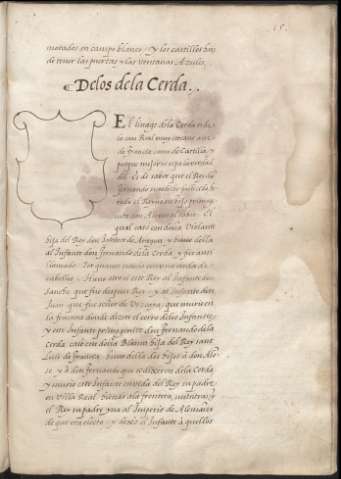 morados en campo blanco. Y los castillos han
de tener las puertas y las ventanas Azules.
Delos dela Cerda..
El linage dela Cerda es de
la casa Real muy cercana assi
de Francia como de Castilla, y
porque mejor se sepa la verdad
del. Es de saber que el Rey don
Fernando
el Reyno en su hijo primog
don Alonso el sabio. El
qual caso con doña Violante
hija del Rey don Jaime de Aragon, y huuo della
al Infante don fernando dela Cerda, y fue assi
llamado: Por quanto nacio con una cerda de
cabellos. Huuo otro si este Rey al Infante don
Sancho que fue despues Rey, y al infante don
Juan que fue señor de Vizcaya, que murio en
la donde dizen el cerro delos Infantes,
y este Infante primogenito don fernando dela
Cerda caso con doña Blanca hija del Rey sant
Luis de francia, huuo della dos hijos a don Alon
so, y a don fernando que se dixeron dela Cerda
y murio este Infante en vida del Rey su padre
en Villa Real. yendo ala frontera, mientras
el Rey su padre yua al Imperio de Alemania
de que era electo, y dexo el Infante a aquellos